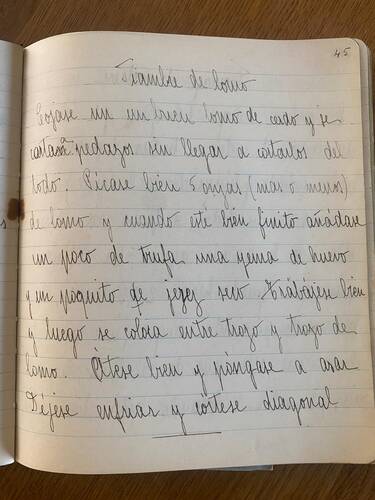 45
Fiambre de lomo
Cojase un un buen lomo de cerdo y se
cortará pedazos sin llegar a cortarlos del
todo. Picase bien 5 onzas (mas o menos)
de lomo y cuando esté bien finito añádase
un poco de trufa una yema de huevo
y un poquito de jerez seco Trabájese bien
y luego se coloca entre trozo y trozo de
lomo. Átese bien y póngase a asar
Déjese enfriar y córtese diagonal